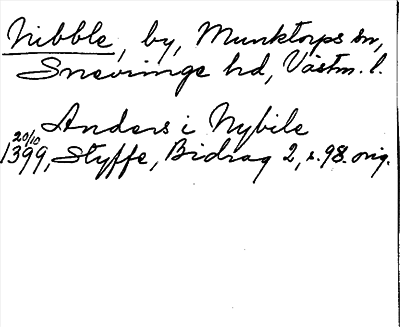 Nibble, by, Munktorps sn,
Snevringe hd, Västm. l.
Anders i Nybile
20/10
1399, Styffe, Bidrag 2, s. 98. orig.